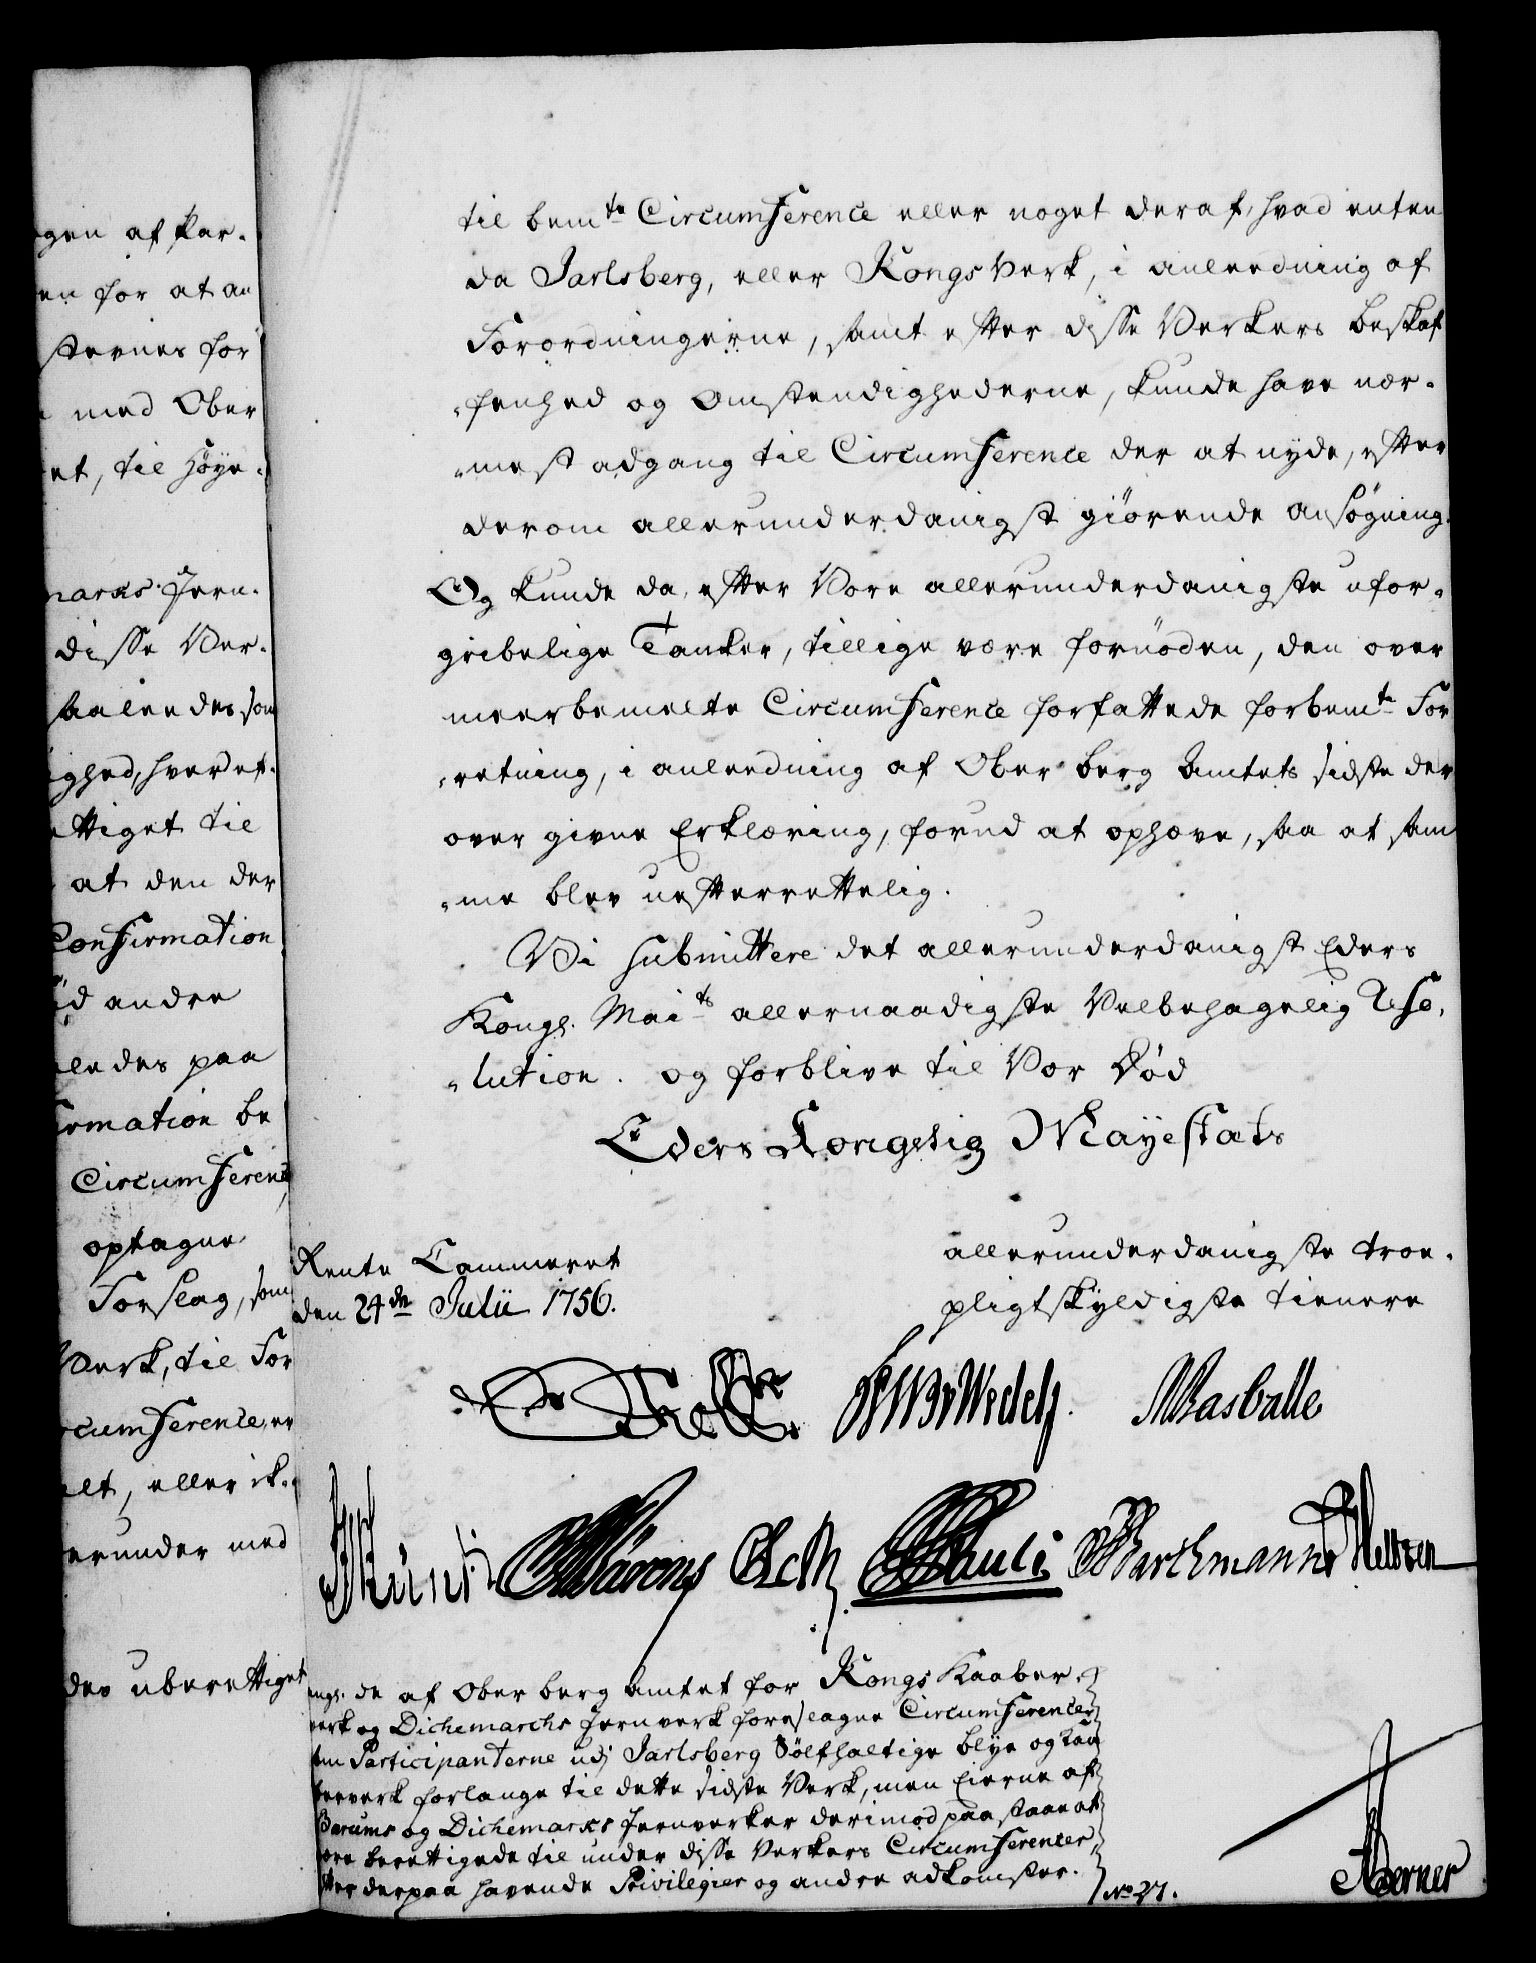 gen af Par-
en for at an
stevnes for
med Ober
et, til Høye-
marks Jern-
disse Ver-
saaledes som
ighed, hvered ef-
ettiget til
at den der
Confirmation
id andre
ledes paa
firmation be
Circumference,
optagne
Forslag, som
Verk, til For
cumference, er
elt, eller ik-
erunder med
des uberettiget
til bemte Circumference eller noget deraf, hvad enten
da Jarlsberg, eller Kongs Verk, i anleedning af
Forordningerne, samt efter disse Verkers beskaf
-fenhed og Omstendighederne, kunde have nær-
-mest adgang til Circumference der at nyde, efter
derom allerunderdanigst giørende ansøgning.
Og kunde da, efter Vore allerunderdanigste ufor-
gribelige Tanker, tillige være fornøden, den over
meerbemelte Circumference forfattede forbemte For
-retning, i anleedning af Ober berg Amtets sidste der
over givne Erklæring, forud at ophæve, saa at sam
-me blev uefterrettelig.
Vi submittere det allerunderdanigst Eders
Kongl. Maits allernaadigste Velbehagelig Reso-
-lution. og forblive til Vor Død
Eders Kongelig Mayestæts
Rente Cammeret
den 24de Julii 1756.
allerunderdanigste troe-
pligtskyldigste tienere
Holst HWBrWedel MRasballe
Schulz Barthmann Heltzen
ang. de af Ober berg Amtet for Kongs Kaaber-
verk og Dichemarchs Jernverk foreslagne Circumferencer
som Participanterne udj Jarlsberg Sølfholtige blye og kaa
berverk forlange til dette sidste Verk, men Eierne af
Bærums og Dichemarks Jernverker derimod paastaae at
være berettigede til under disse Verkers Circumferencer,
efter derpaa havende Privilegier og andre adkomster.
No 27.
Aberner